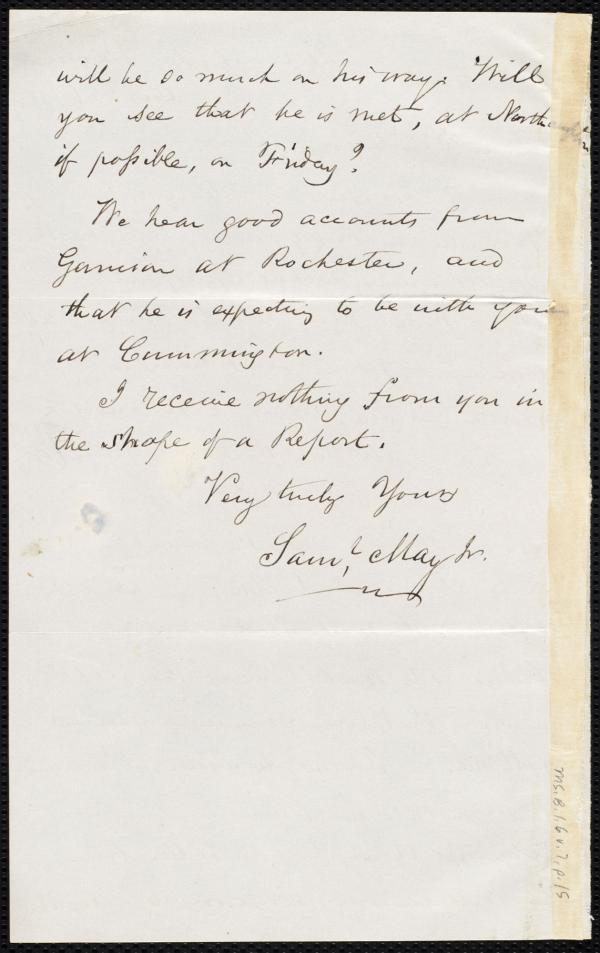 will be so much on his way. Will
you see that he is met, at North
if possible, on Friday?
We hear good accounts from
Garrison at Rochester, and
that he is expecting to be with you
at Cummington.
I receive nothing from you in
the shape of a Report.
Very truly Yours
Saml. May Jr.
Ms.B.1.6 v.7, p.15